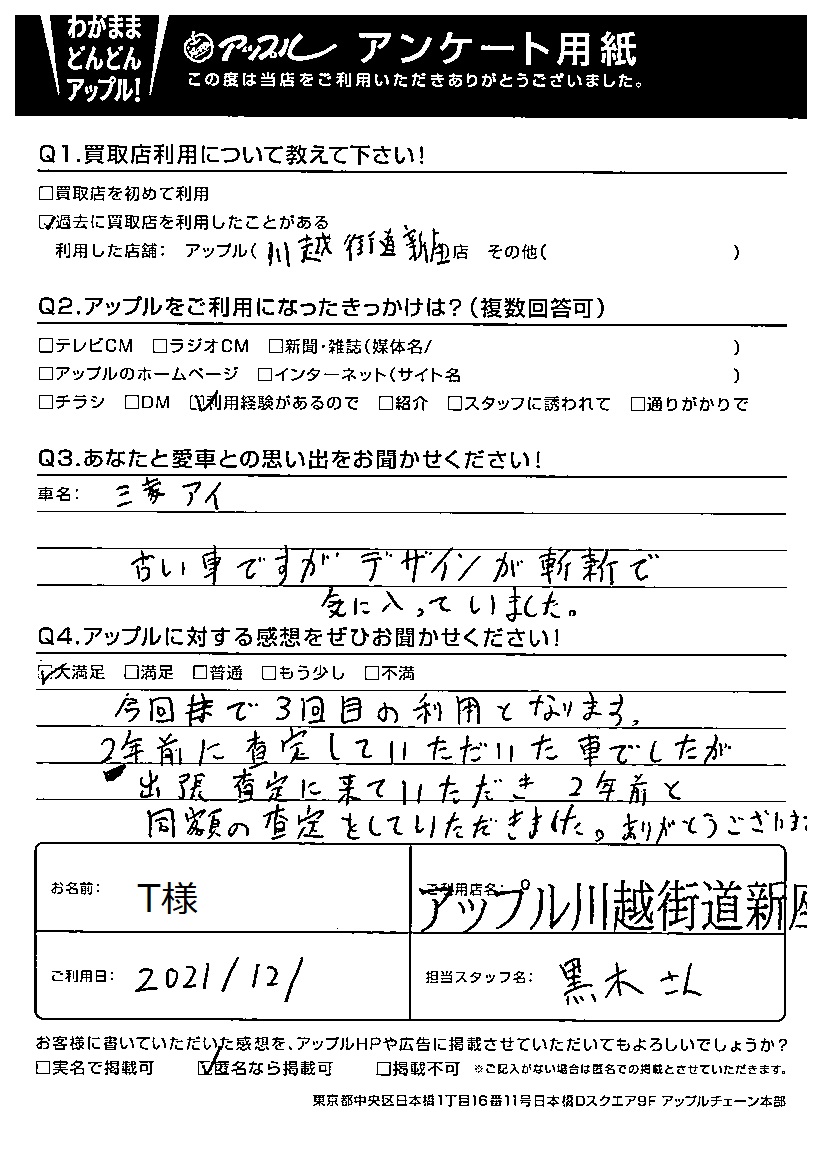 わがまま
どんどん
アップル!
アップル アンケート用紙
この度は当店をご利用いただきありがとうございました。
Q1.買取店利用について教えて下さい!
□買取店を初めて利用
☑過去に買取店を利用したことがある
利用した店舗: アップル( 川越街道新座店 その他( )
Q2.アップルをご利用になったきっかけは?(複数回答可)
□テレビCM □ラジオCM □新聞・雑誌(媒体名/ )
□アップルのホームページ □インターネット(サイト名 )
□チラシ □DM ☑利用経験があるので □紹介 □スタッフに誘われて □通りがかりで
Q3.あなたと愛車との思い出をお聞かせください!
車名: 三菱 アイ
古い車ですが デザインが斬新で
気に入っていました。
Q4.アップルに対する感想をぜひお聞かせください!
☑大満足 □満足 □普通 □もう少し □不満
今回まで3回目の利用となります。
2年前に査定していただいた車でしたが
出張査定に来ていただき 2年前と
同額の査定をしていただきました。ありがとうございま
お名前: T様
ご利用店名: アップル川越街道新座
ご利用日: 2021/12/
担当スタッフ名: 黒木さん
お客様に書いていただいた感想を、アップルHPや広告に掲載させていただいてもよろしいでしょうか?
□実名で掲載可 ☑匿名なら掲載可 □掲載不可 ※ご記入がない場合は匿名での掲載とさせていただきます。
東京都中央区日本橋1丁目16番11号日本橋Dスクエア9F アップルチェーン本部